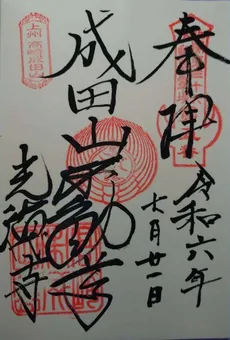 奉拝
令和六年
月廿一日
成田山不動尊
上州 高崎成田山
光徳寺